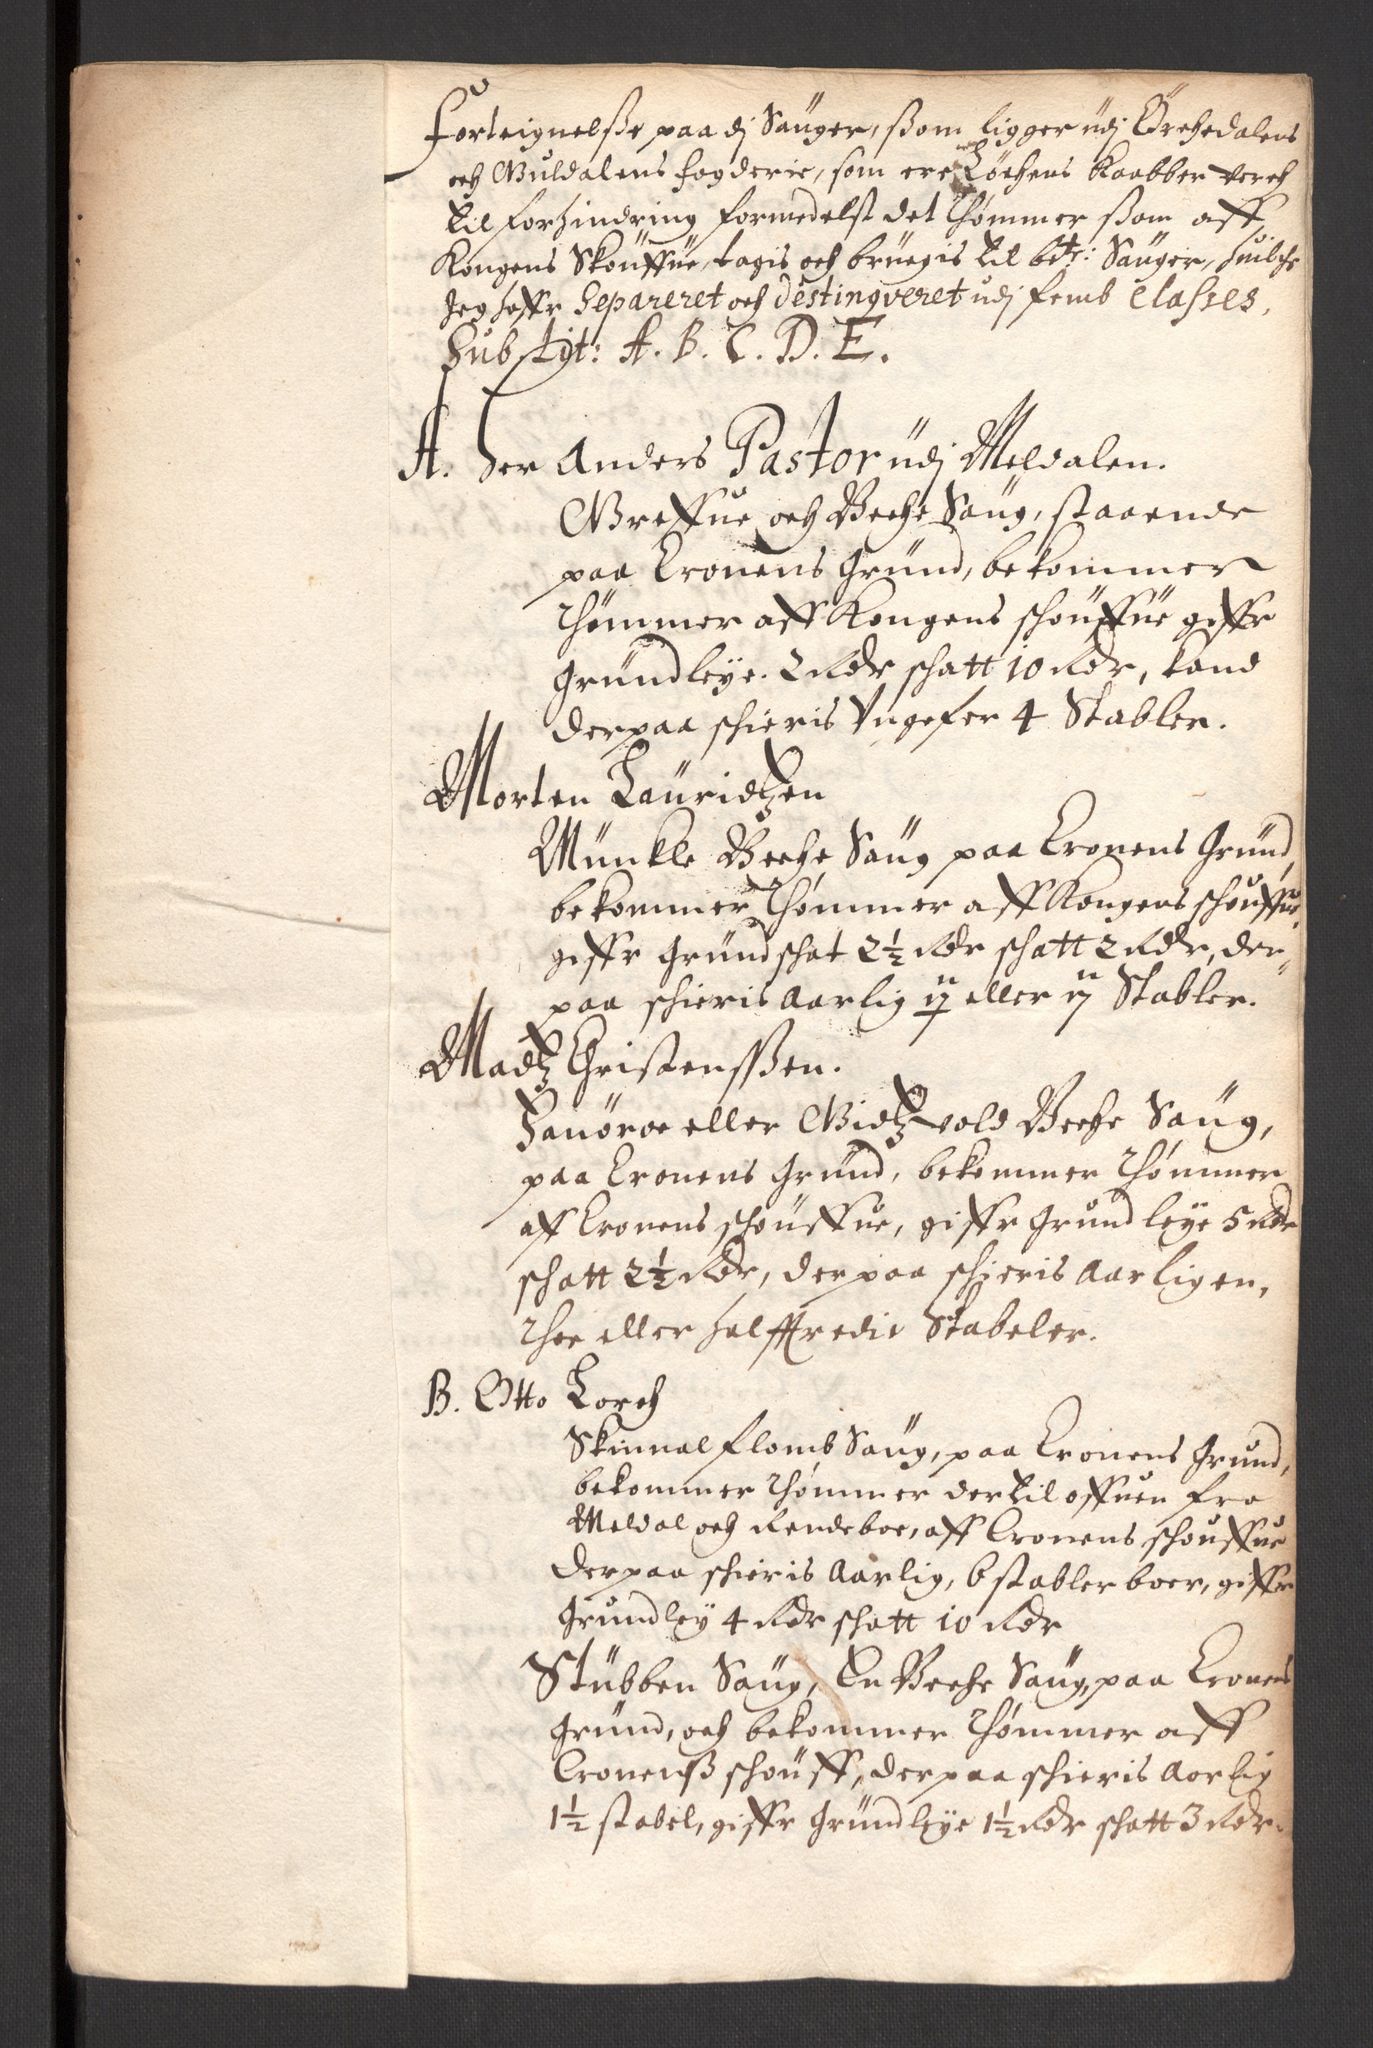 Forteignelsse paa dj Sauger, ssom ligger udj Örchedalens
och Guldalens fogderie, som ere Löchens Kaabber verch
til forhindring formedelst det thømmer ssom aff
Kongens Skouffue, tagis och bruegis til bete: Sauger, huilche
Jeg haffr Separeret och destingveret udj femb Classes.
Sub
A. B. C. D. E.
A. Her Anders Pastor udj Meldalen.
Greffue och Beche Saug, staaende
paa Cronens Grund, bekommer
thømmer aff Kongens schouffue giffr
Grundleye. 2 Rdr schatt 10 Rdr, kand
derpaa schieris Vngefer 4 Stabler.
Morten Lauridtzen
Munkle Beche Saug paa Cronens Grund,
bekommer Thømmer aff Kongens schouffue,
giffr Grundschat 2½ Rdr schatt 2 Rdr, der-
paa schieris Aarlig eller Stabler.
Madtz Christenssen.
eller Gidtzvold Beche Saug,
paa Cronens Grund, bekommer Thømmer
aff Cronens schouffue, giffr Grundleye 5 Rdr
schatt 2½ Rdr, derpaa schieris Aarligen,
Thoe eller halfftredie Stabeler.
B. Otto Lorch
Skinnalflomb Saug, paa Cronens Grund,
bekommer Thømmer dertil offuen fra
Meldal och Rendeboe, aff Cronens schouffue
derpaa schieris Aarlig, 6 stabler boer, giffr
Grundley 4 Rdr schatt 10 Rdr
Stubben Saug, En Beche Saug, paa Cronens
Grund, och bekommer Thømmer aff
Cronenss schouff, derpaa schieris Aarlig
1½ stabel, giffr Grundleye 1½ Rdr schatt 3 Rdr.